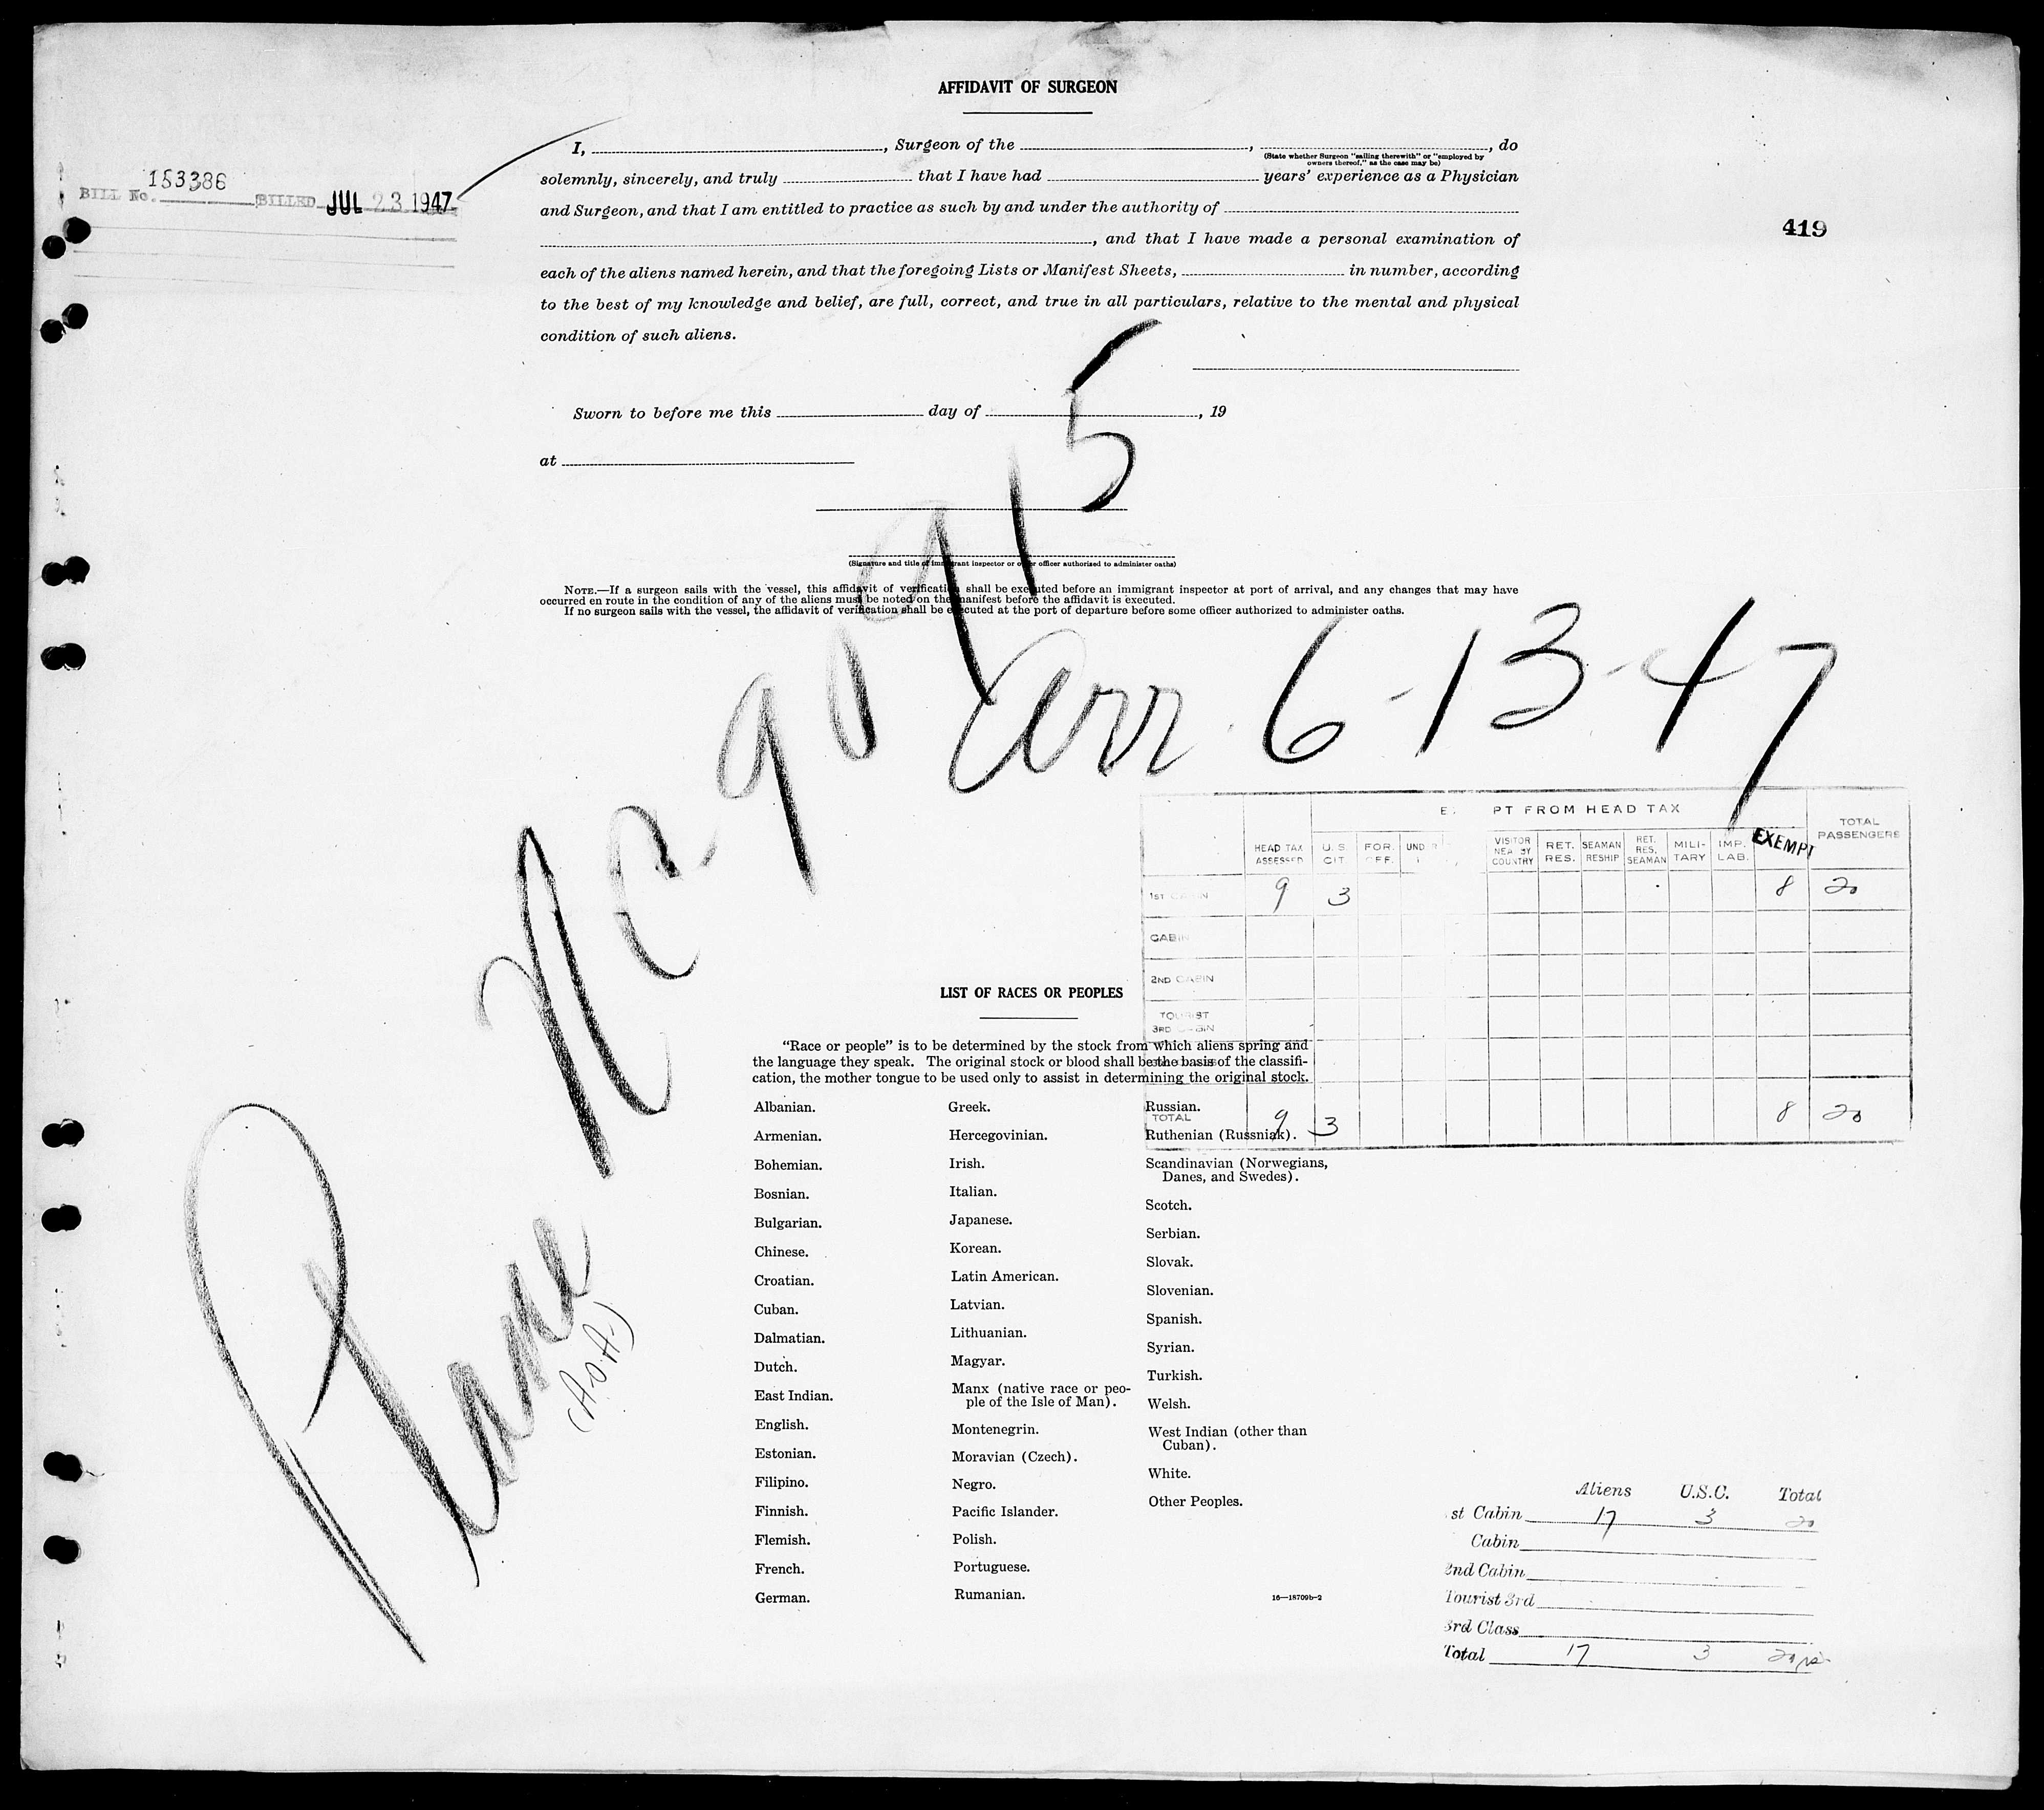 AFFIDAVIT OF SURGEON
I, , Surgeon of the , , do
(State whether Surgeon "sailing therewith" or "employed by
owners thereof," as the case may be)
solemnly, sincerely, and truly that I have had years' experience as a Physician
and Surgeon, and that I am entitled to practice as such by and under the authority of
, and that I have made a personal examination of
each of the aliens named herein, and that the foregoing Lists or Manifest Sheets, in number, according
to the best of my knowledge and belief, are full, correct, and true in all particulars, relative to the mental and physical
condition of such aliens.
BILL No. 153386 BILLED JUL 23 1947
419
Sworn to before me this day of , 19
at
(Signature and title of immigrant inspector or other officer authorized to administer oaths)
NOTE.—If a surgeon sails with the vessel, this affidavit of verification shall be executed before an immigrant inspector at port of arrival, and any changes that may have
occurred en route in the condition of any of the aliens must be noted on the manifest before the affidavit is executed.
If no surgeon sails with the vessel, the affidavit of verification shall be executed at the port of departure before some officer authorized to administer oaths.
Plane NC-90915
(A.O.A.)
Arr. 6-13-47
PT FROM HEAD TAX
HEAD TAX ASSESSED
U. S. CIT.
FOR. OFF.
VISITOR NEARBY COUNTRY
RET. RES.
SEAMAN RESHIP
RET. RES. SEAMAN
MILI- TARY
IMP. LAB.
EXEMPT
TOTAL PASSENGERS
1ST CABIN 9 3 8 20
CABIN
2ND CABIN
TOURIST
3RD CABIN
TOTAL 9 3 8 20
LIST OF RACES OR PEOPLES
"Race or people" is to be determined by the stock from which aliens spring and
the language they speak. The original stock or blood shall be the basis of the classifi-
cation, the mother tongue to be used only to assist in determining the original stock.
Albanian.
Armenian.
Bohemian.
Bosnian.
Bulgarian.
Chinese.
Croatian.
Cuban.
Dalmatian.
Dutch.
East Indian.
English.
Estonian.
Filipino.
Finnish.
Flemish.
French.
German.
Greek.
Hercegovinian.
Irish.
Italian.
Japanese.
Korean.
Latin American.
Latvian.
Lithuanian.
Magyar.
Manx (native race or peo-
ple of the Isle of Man).
Montenegrin.
Moravian (Czech).
Negro.
Pacific Islander.
Polish.
Portuguese.
Rumanian.
Russian.
Ruthenian (Russniak).
Scandinavian (Norwegians,
Danes, and Swedes).
Scotch.
Serbian.
Slovak.
Slovenian.
Spanish.
Syrian.
Turkish.
Welsh.
West Indian (other than
Cuban).
White.
Other Peoples.
16—18709b-2
Aliens U.S.C. Total
st Cabin 17 3 20
Cabin
2nd Cabin
Tourist 3rd
3rd Class
Total 17 3 20